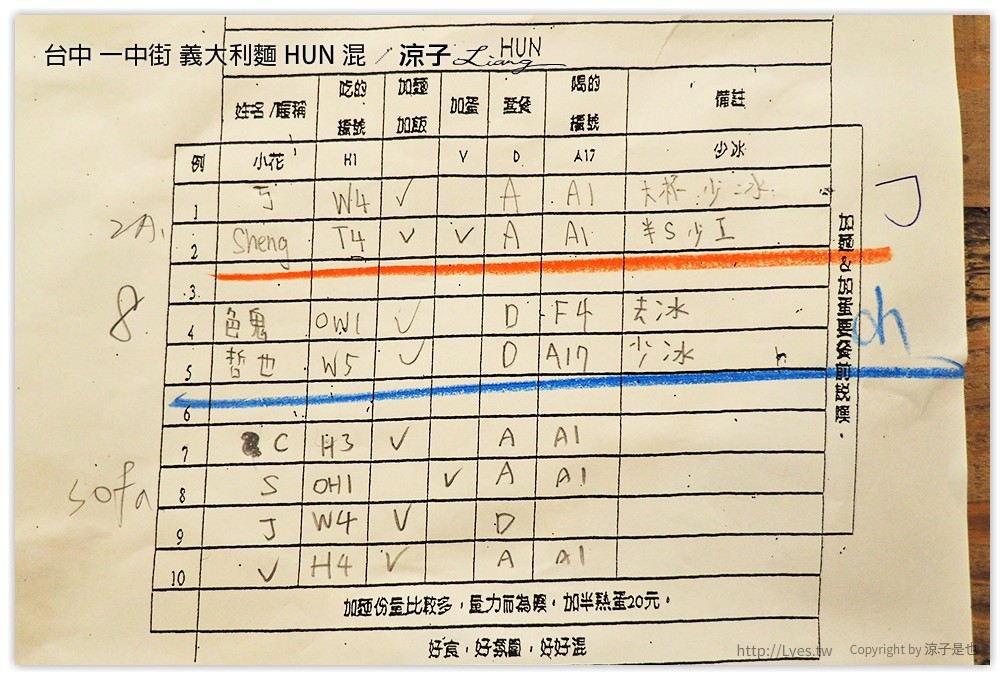 台中 一中街 義大利麵 HUN 混 / 涼子 Liang
HUN
姓名/暱稱 吃的編號 加麵加飯 加蛋 套餐 喝的編號 備註
例 小花 H1 V D A17 少冰
1 ㄎ W4 ✓ A A1 大杯 少冰
2A.
2 Sheng T4 ✓ ✓ A A1 半S少工
3
8.
4 色鬼 OW1 ✓ D F4 去冰
5 哲也 W5 ✓ D A17 少冰
6
7 C H3 ✓ A A1
sofa
8 S OH1 ✓ A A1
9 J W4 ✓ D
10 V H4 ✓ A A1
加麵份量比較多，量力而為噢。加半熟蛋20元。
好食，好氛圍，好好混
加麵&加蛋要餐前說噢。
J
oh
http://Lyes.tw Copyright by 涼子是也